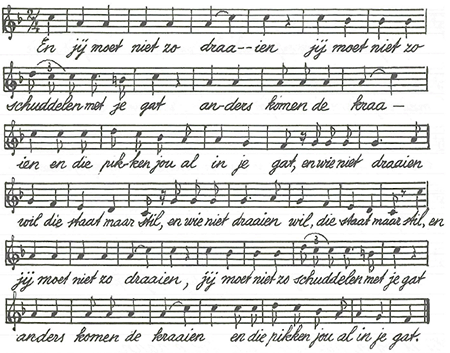 2/4
En jij moet niet zo draa--ien jij moet niet zo
3
schuddelen met je gat an-ders komen de kraa—
ien en die pik-ken jou al in je gat, en wie niet draaien
wil die staat maar stil, en wie niet draaien wil, die staat maar stil, en
3
jij moet niet zo draaien, jij moet niet zo schuddelen met je gat
anders komen de kraaien en die pikken jou al in je gat.